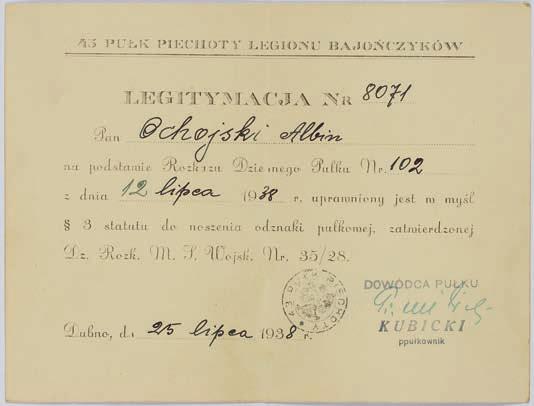 43 PUŁK PIECHOTY LEGIONU BAJOŃCZYKÓW
LEGITYMACJA NR 8071
Pan Ochojski Albin
na podstawie Rozkazu Dziennego Pułku Nr. 102
z dnia 12 lipca 1938 r. uprawniony jest w myśl
§ 3 statutu do noszenia odznaki pułkowej, zatwierdzonej
Dz. Rozk. M. S. Wojsk. Nr. 35/28.
43 PUŁK PIECHOTY
DOWÓDCA PUŁKU
KUBICKI
ppułkownik
Dubno, d. 25 lipca 1938 r.